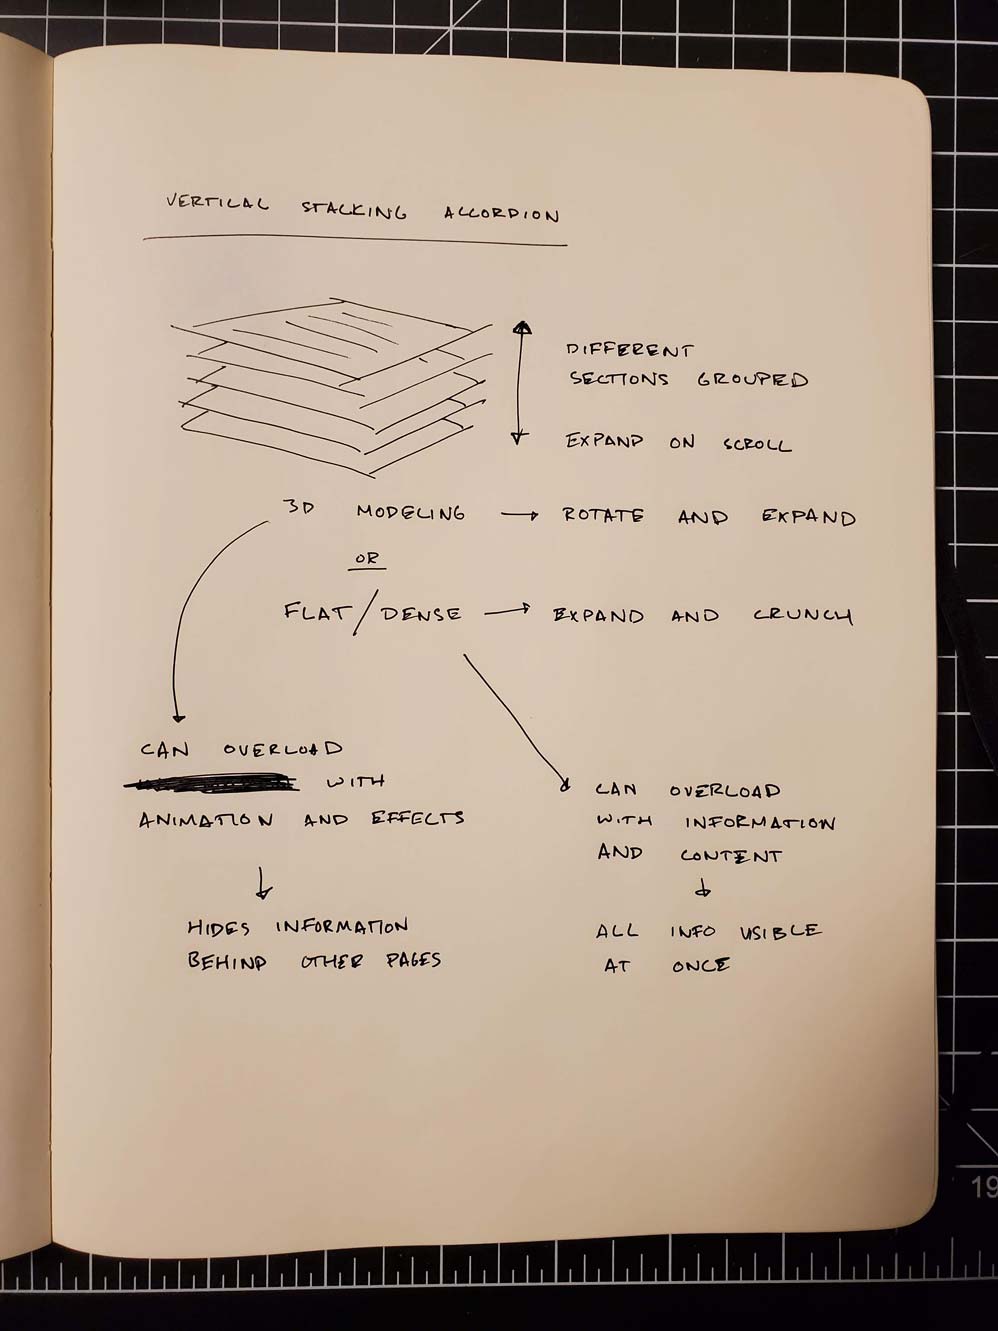 VERTICAL STACKING ACCORDION
DIFFERENT
SECTIONS GROUPED
EXPAND ON SCROLL
3D MODELING → ROTATE AND EXPAND
OR
FLAT/DENSE → EXPAND AND CRUNCH
CAN OVERLOAD
WITH
ANIMATION AND EFFECTS
↓
HIDES INFORMATION
BEHIND OTHER PAGES
CAN OVERLOAD
WITH INFORMATION
AND CONTENT
↓
ALL INFO VISIBLE
AT ONCE
19